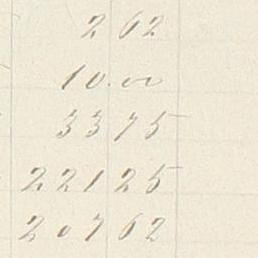 2 62
10.00
33 75
221 25
207 62